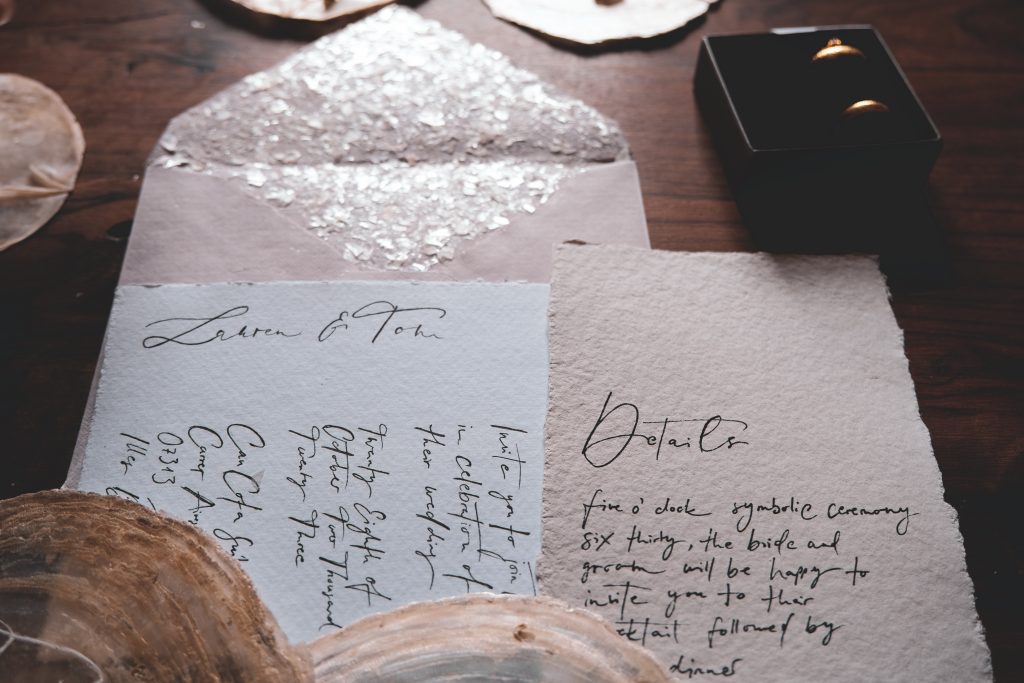 Lauren & Tom
Invite you to join
in celebration of
their wedding
Twenty Eighth of
October Two Thousand
Twenty Three
Can Cota
Carrer
07313
Details
five o' clock symbolic ceremony
six thirty, the bride and
groom will be happy to
invite you to their
cktail followed by
dinner